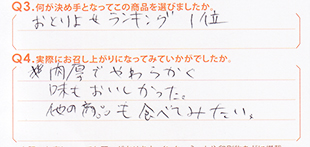 Q3.何が決め手となってこの商品を選びましたか。
おとりよせランキング 1位
Q4.実際にお召し上がりになってみていかがでしたか。
肉厚でやわらかく
味もおいしかった。
他の商品も食べてみたい。